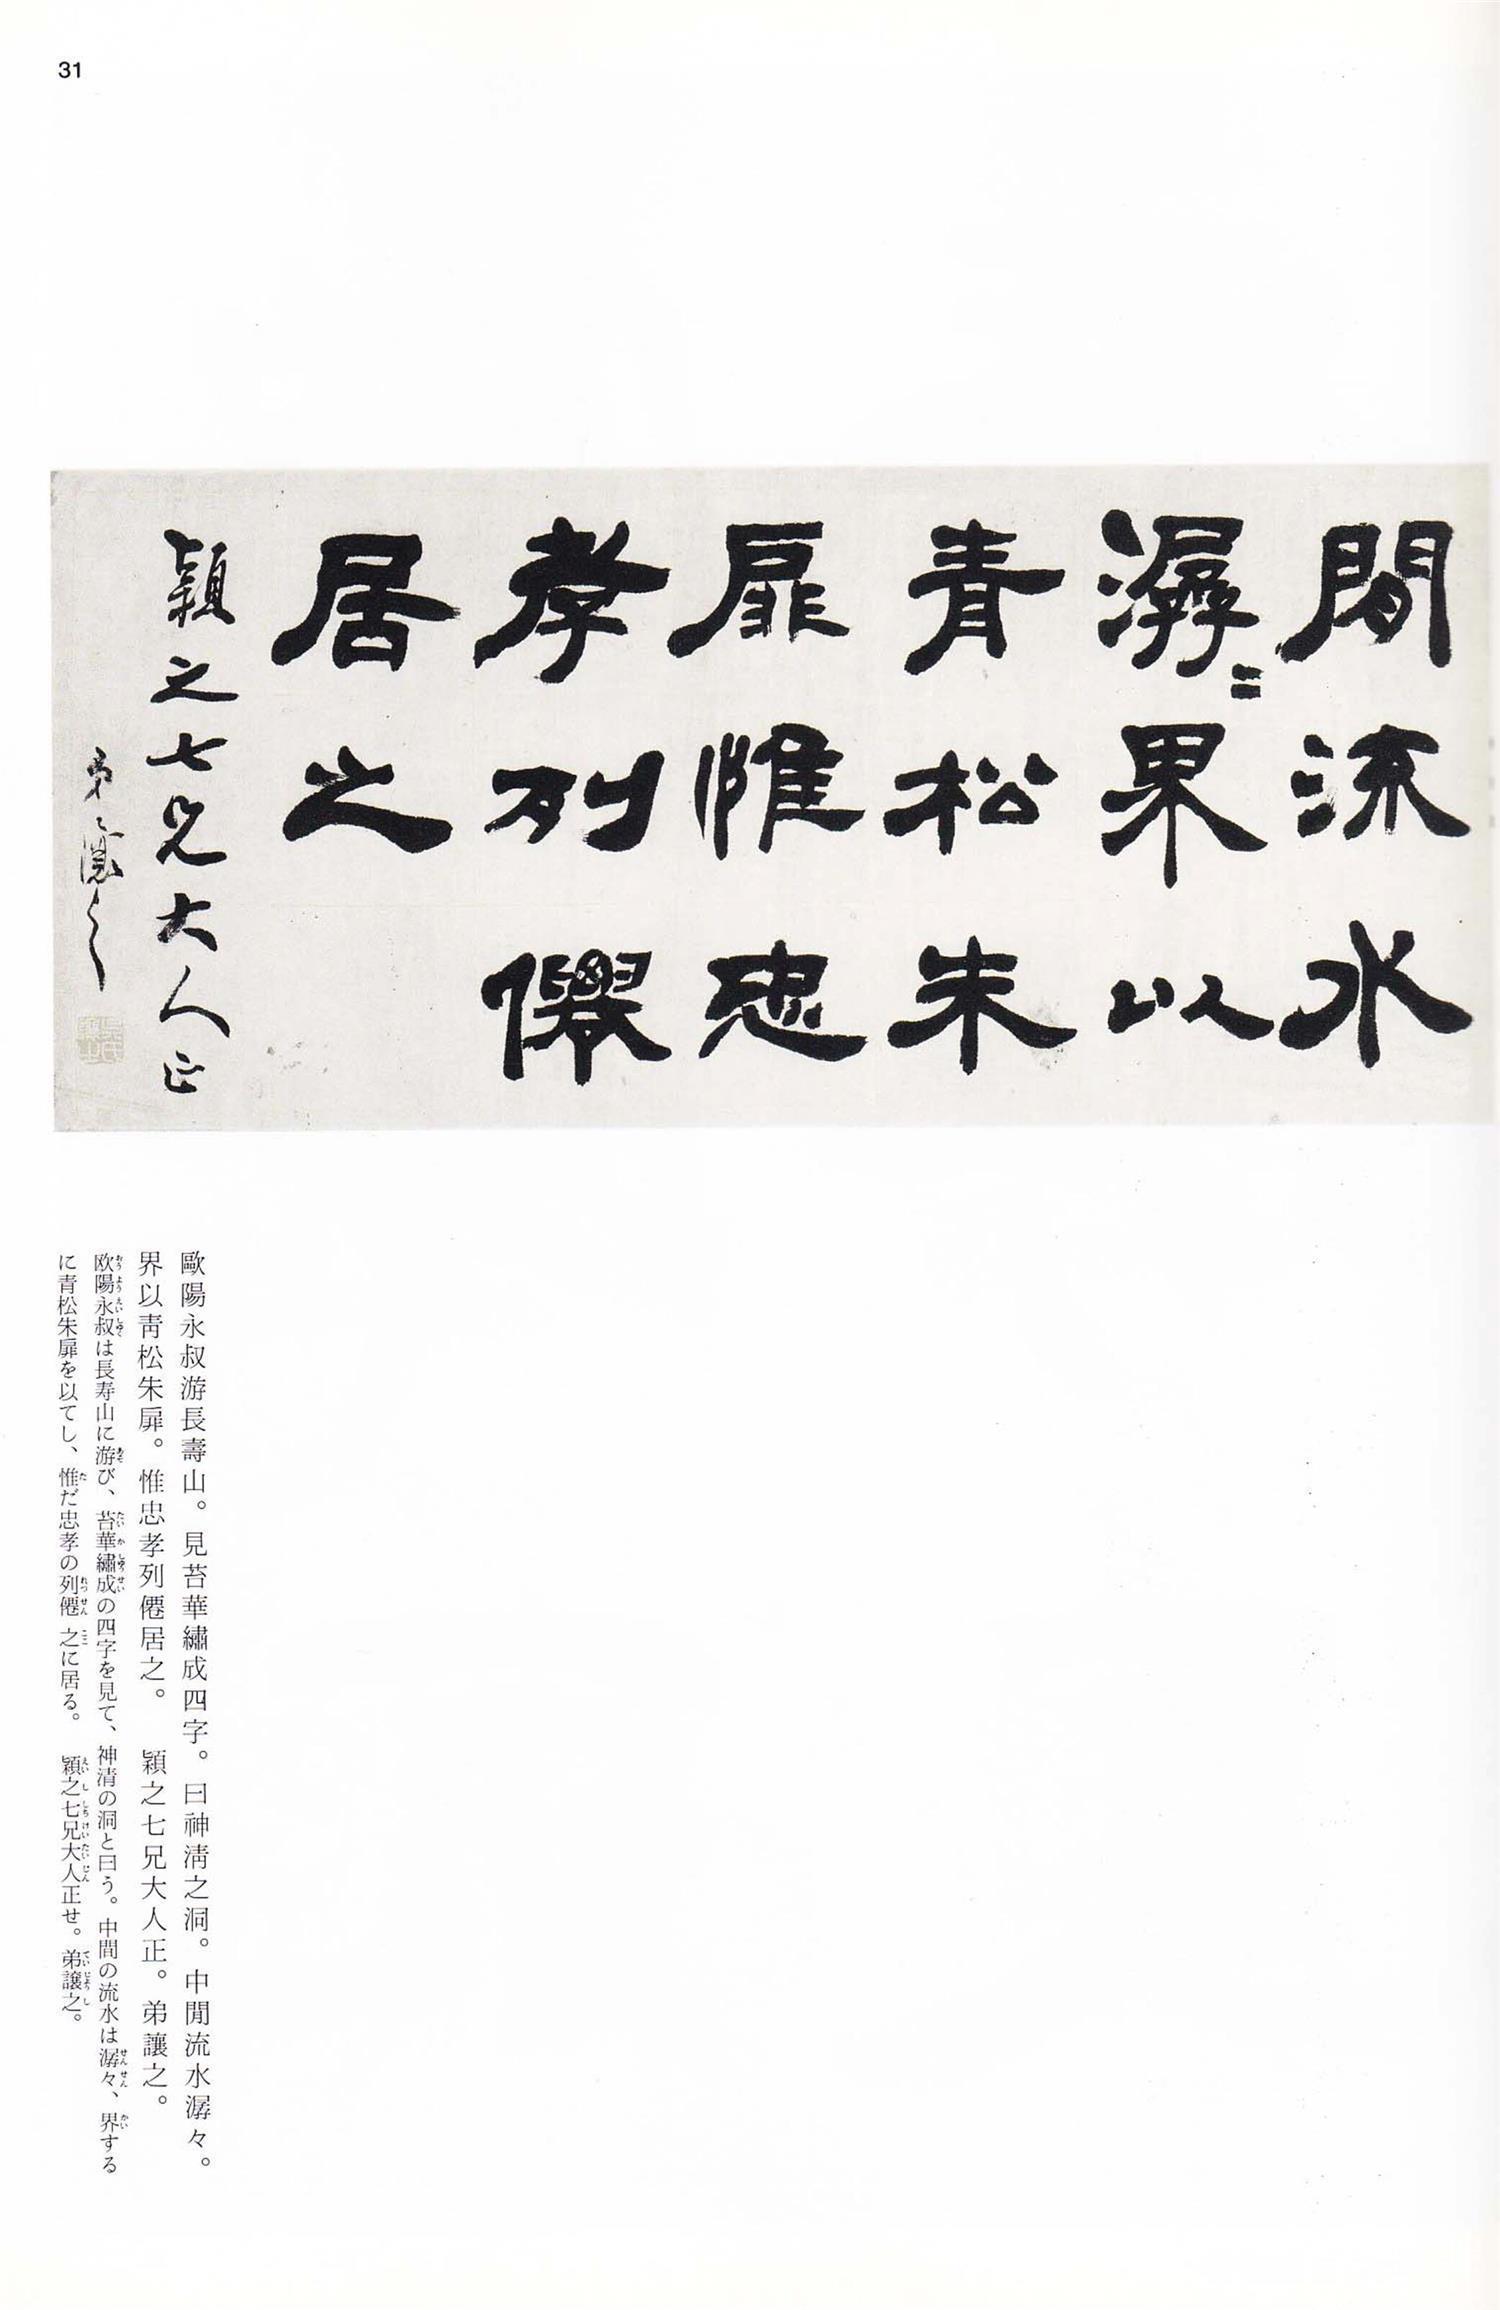 31
間流水
潺〻界以
青松朱
扉惟忠
孝列僊
居之
穎之七兄大人正
弟讓之
歐陽永叔游長壽山。見苔華繡成四字。曰神淸之洞。中閒流水潺々。
界以靑松朱扉。惟忠孝列僊居之。　穎之七兄大人正。弟讓之。
欧陽永叔は長寿山に游び、苔華繡成の四字を見て、神清の洞と曰う。中間の流水は潺々、界する
に青松朱扉を以てし、惟だ忠孝の列僊之に居る。　穎之七兄大人正せ。弟譲之。